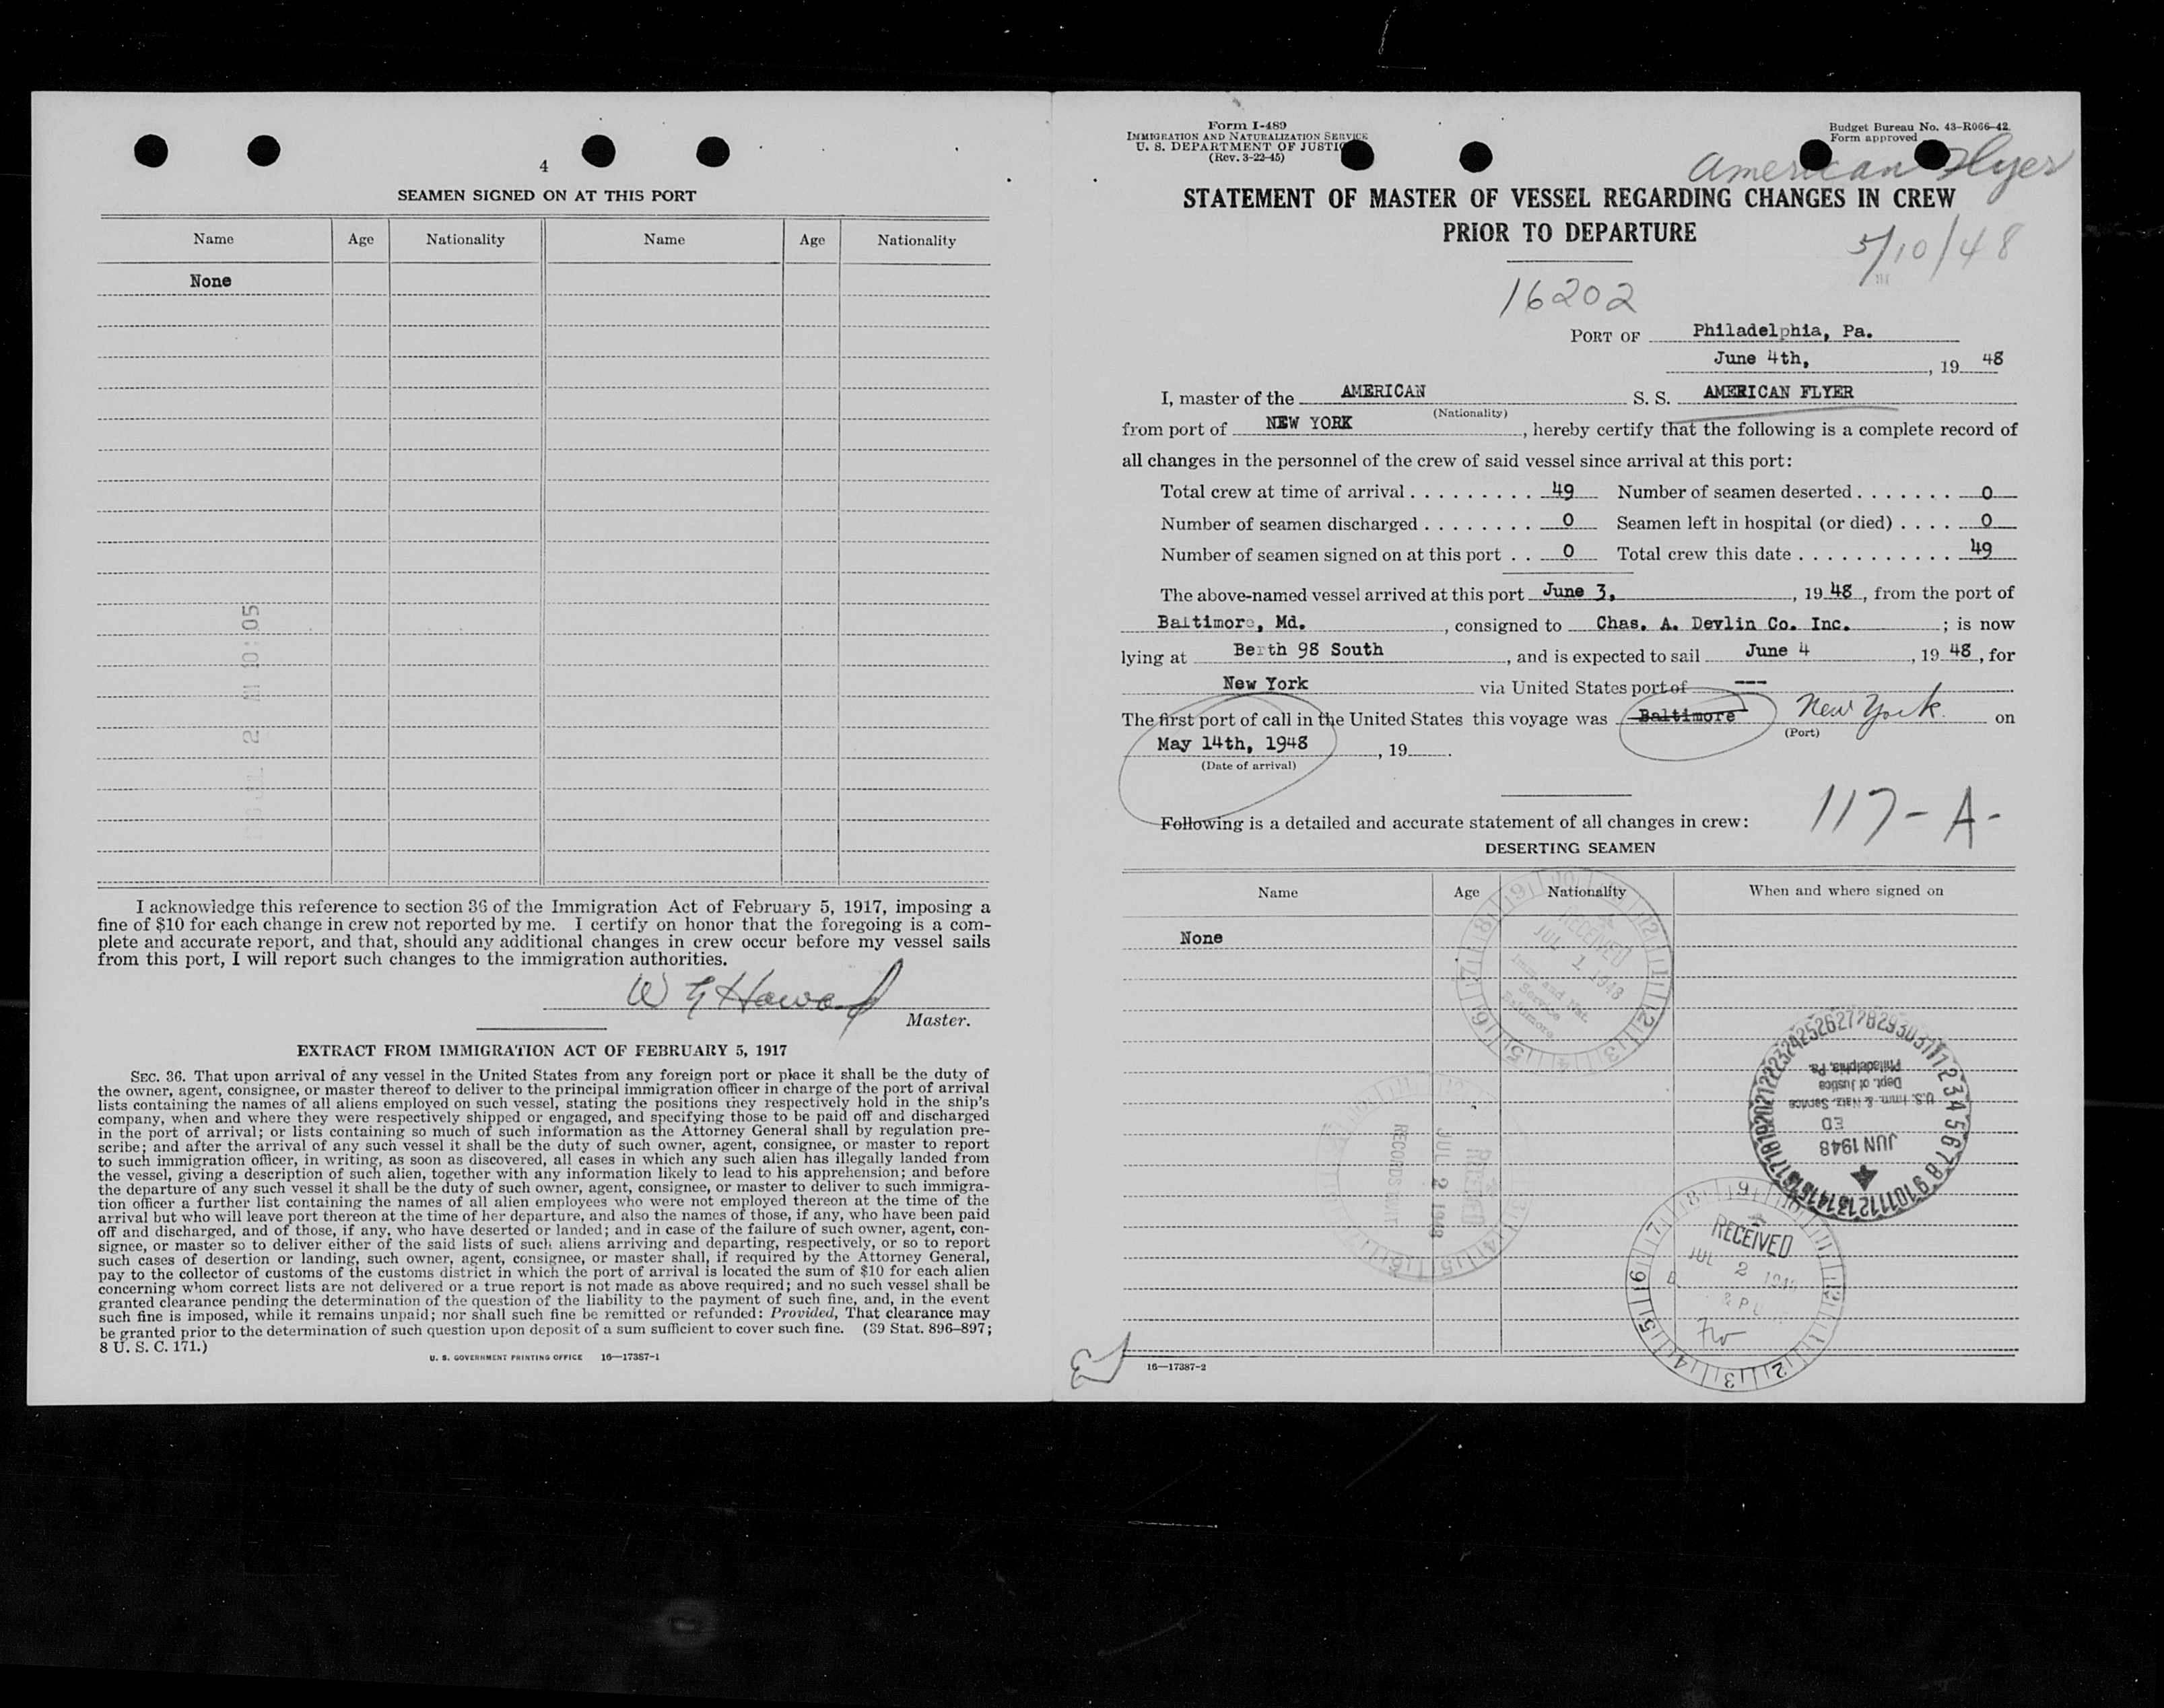 4
SEAMEN SIGNED ON AT THIS PORT
Name Age Nationality Name Age Nationality
None
10:05
2
I acknowledge this reference to section 36 of the Immigration Act of February 5, 1917, imposing a
fine of $10 for each change in crew not reported by me. I certify on honor that the foregoing is a com-
plete and accurate report, and that, should any additional changes in crew occur before my vessel sails
from this port, I will report such changes to the immigration authorities.
W G Howard
Master.
EXTRACT FROM IMMIGRATION ACT OF FEBRUARY 5, 1917
SEC. 36. That upon arrival of any vessel in the United States from any foreign port or place it shall be the duty of
the owner, agent, consignee, or master thereof to deliver to the principal immigration officer in charge of the port of arrival
lists containing the names of all aliens employed on such vessel, stating the positions they respectively hold in the ship's
company, when and where they were respectively shipped or engaged, and specifying those to be paid off and discharged
in the port of arrival; or lists containing so much of such information as the Attorney General shall by regulation pre-
scribe; and after the arrival of any such vessel it shall be the duty of such owner, agent, consignee, or master to report
to such immigration officer, in writing, as soon as discovered, all cases in which any such alien has illegally landed from
the vessel, giving a description of such alien, together with any information likely to lead to his apprehension; and before
the departure of any such vessel it shall be the duty of such owner, agent, consignee, or master to deliver to such immigra-
tion officer a further list containing the names of all alien employees who were not employed thereon at the time of the
arrival but who will leave port thereon at the time of her departure, and also the names of those, if any, who have been paid
off and discharged, and of those, if any, who have deserted or landed; and in case of the failure of such owner, agent, con-
signee, or master so to deliver either of the said lists of such aliens arriving and departing, respectively, or so to report
such cases of desertion or landing, such owner, agent, consignee, or master shall, if required by the Attorney General,
pay to the collector of customs of the customs district in which the port of arrival is located the sum of $10 for each alien
concerning whom correct lists are not delivered or a true report is not made as above required; and no such vessel shall be
granted clearance pending the determination of the question of the liability to the payment of such fine, and, in the event
such fine is imposed, while it remains unpaid; nor shall such fine be remitted or refunded: Provided, That clearance may
be granted prior to the determination of such question upon deposit of a sum sufficient to cover such fine. (39 Stat. 896–897;
8 U. S. C. 171.)
U. S. GOVERNMENT PRINTING OFFICE 16—17387-1
Form I-489
IMMIGRATION AND NATURALIZATION SERVICE
U. S. DEPARTMENT OF JUSTIC
(Rev. 3-22-45)
Budget Bureau No. 43-R066-42.
Form approved
American Flyer
STATEMENT OF MASTER OF VESSEL REGARDING CHANGES IN CREW
PRIOR TO DEPARTURE
5/10/48
16202
PORT OF Philadelphia, Pa.
June 4th, , 19 48
I, master of the AMERICAN S. S. AMERICAN FLYER
(Nationality)
from port of NEW YORK , hereby certify that the following is a complete record of
all changes in the personnel of the crew of said vessel since arrival at this port:
Total crew at time of arrival 49 Number of seamen deserted 0
Number of seamen discharged 0 Seamen left in hospital (or died) 0
Number of seamen signed on at this port 0 Total crew this date 49
The above-named vessel arrived at this port June 3, , 19 48 , from the port of
Baltimore, Md. , consigned to Chas. A. Devlin Co. Inc. ; is now
lying at Berth 98 South , and is expected to sail June 4 , 19 48 , for
New York via United States port of ---
The first port of call in the United States this voyage was Baltimore New York on
(Port)
May 14th, 1948 , 19 .
(Date of arrival)
117-A-
Following is a detailed and accurate statement of all changes in crew:
DESERTING SEAMEN
Name Age Nationality When and where signed on
None
RECEIVED
JUL 1 1948
Imm. and Nat.
Service
Baltimore
Philadelphia, Pa.
Dept. of Justice
U.S. Imm. & Natz. Service
ED
JUN 1948
RECEIVED
JUL 2 1948
RECORDS UNIT
RECEIVED
JUL 2 1948
16—17387-2